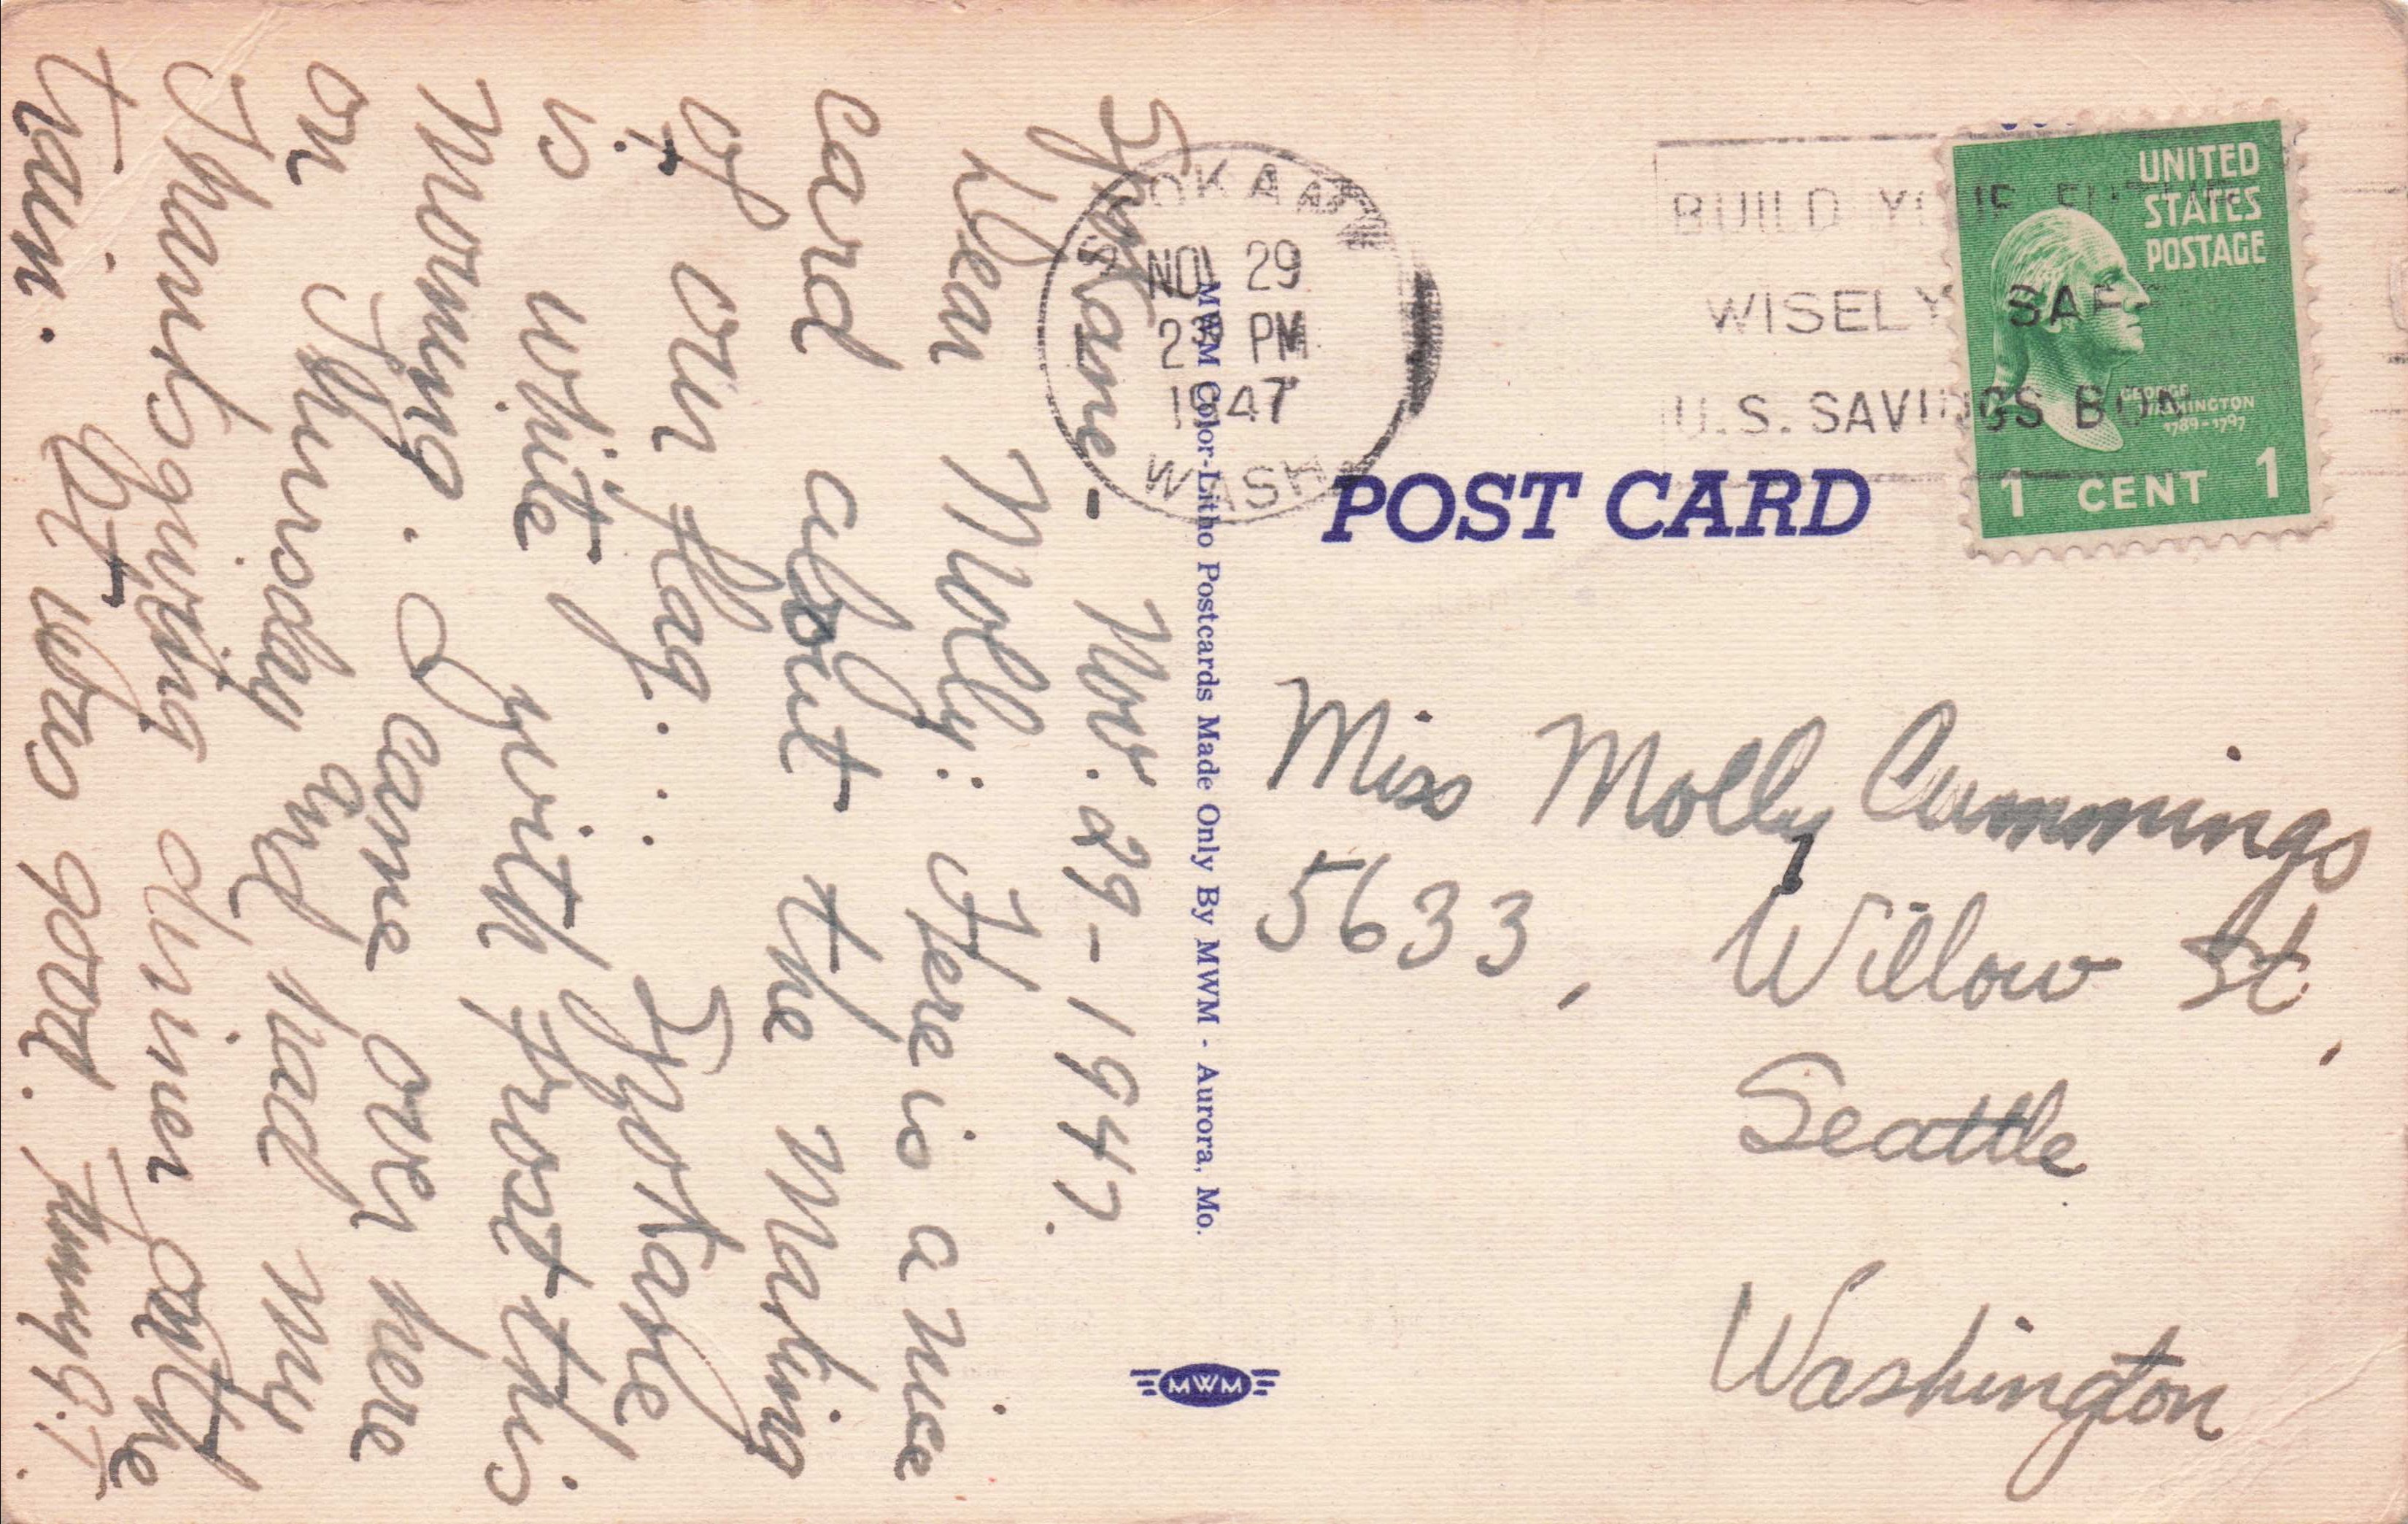 Spokane - Nov. 29 - 1947.
Dear Molly: Here is a nice
card about the Making
of our flag. . . . Spokane
is white with frost this
Morning. I came over here
on Thursday and had my
Thanksgiving dinner on the
train. It was good.
SPOKANE
NOV 29
PM
1947
WASH
BUILD YOUR FUTURE
WISELY SAFELY
U.S. SAVINGS BONDS
UNITED
STATES
POSTAGE
GEORGE
WASHINGTON
1789-1797
1 CENT 1
POST CARD
MWM Color-Litho Postcards Made Only By MWM - Aurora, Mo.
MWM
Miss Molly Cummings
5633, Willow St,
Seattle
Washington